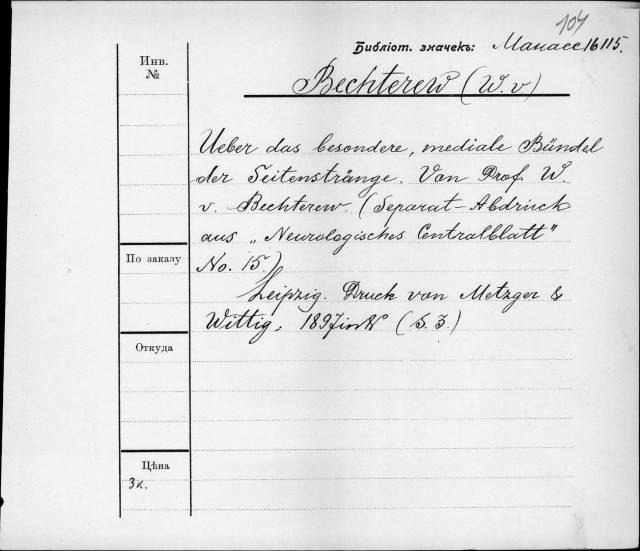 104
Библіот. значекъ: Манасс 16115.
Инв. №
Bechterew (W. v)
Ueber das besondere, mediale Bündel
der Seitenstränge. Von Prof. W.
v. Bechterew. (Separat-Abdruck
aus „Neurologisches Centralblatt"
По заказу
No. 15.)
Leipzig. Druck von Metzger &
Wittig, 1897 in 8° (S. 3.)
Откуда
Цѣна
3к.